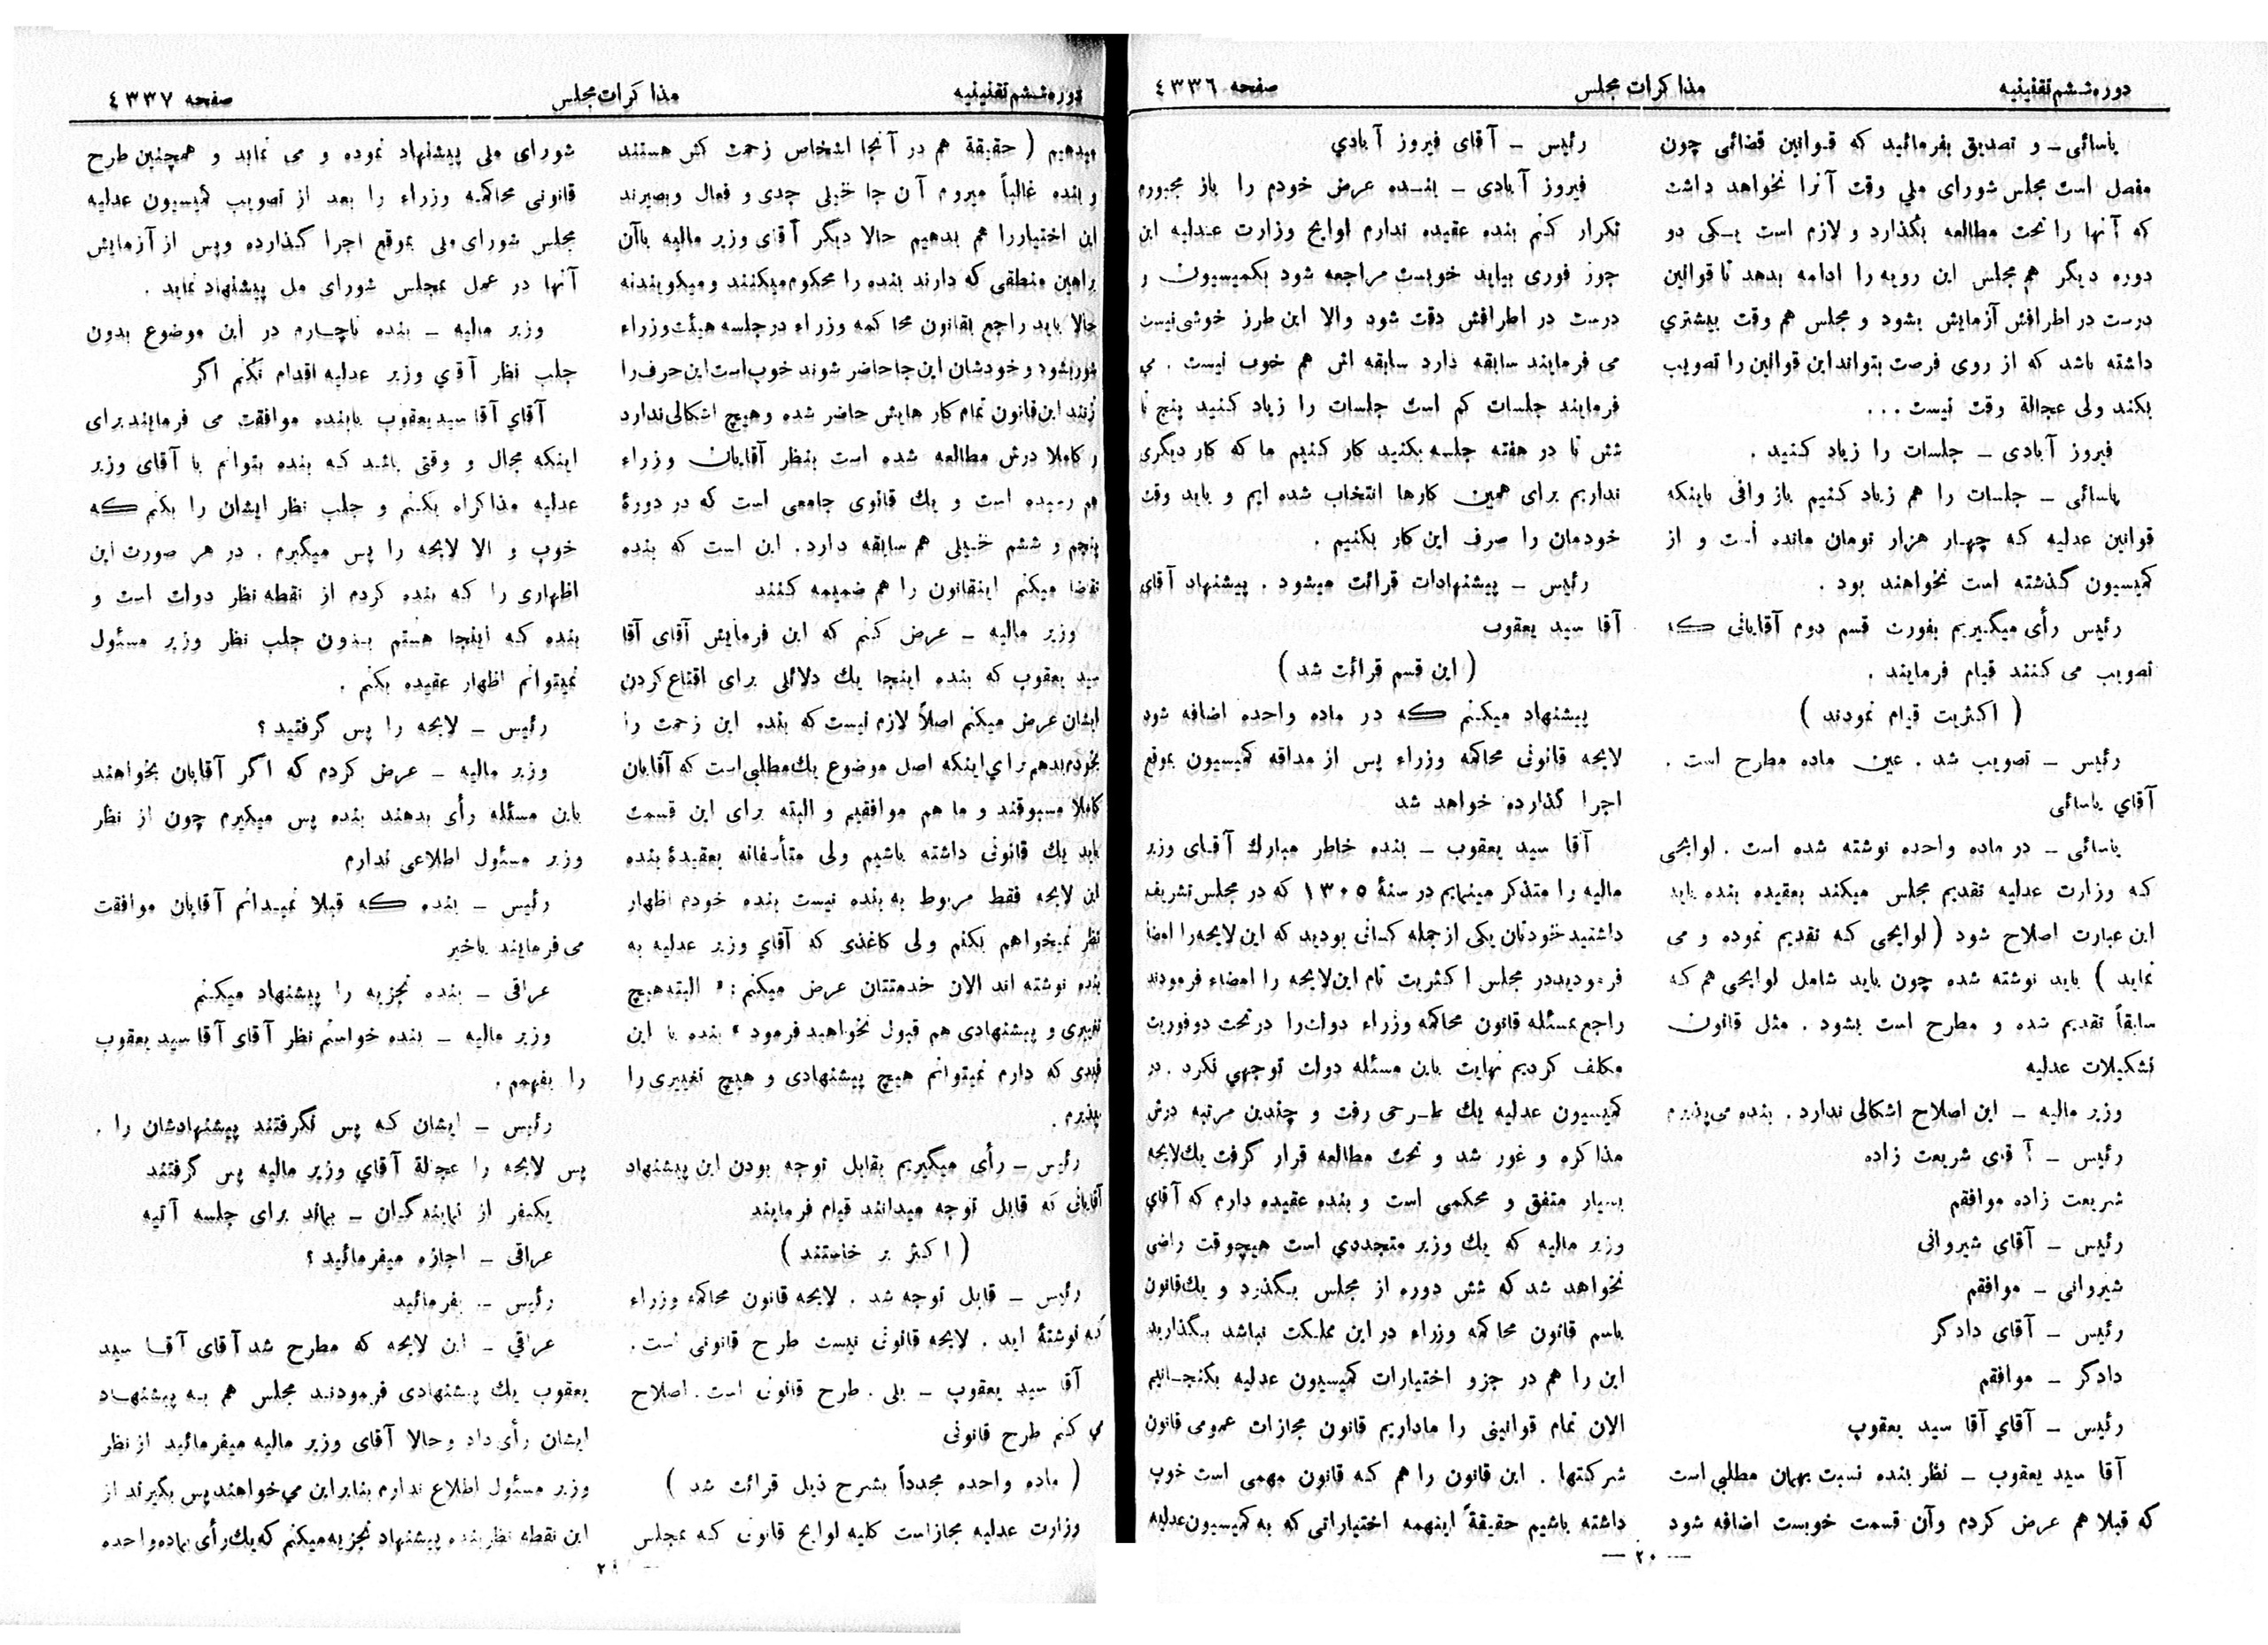 دوره ششم تقنینیه
مذاکرات مجلس
صفحه ٤٣٣٦
یاسائی ـ و تصدیق بفرمائید که قوانین قضائی چون
مفصل است مجلس شورای ملي وقت آنرا نخواهد داشت
که آنها را تحت مطالعه بگذارد و لازم است یکی دو
دوره دیگر هم مجلس این رویه را ادامه بدهد تا قوانین
درست در اطرافش آزمایش بشود و مجلس هم وقت بیشتري
داشته باشد که از روی فرصت بتواند این قوانین را تصویب
بکند ولی عجالة وقت نیست...
فیروز آبادی ـ جلسات را زیاد کنید .
یاسائی ـ جلسات را هم زیاد کنیم باز وافی باینکه
قوانین عدلیه که چهار هزار تومان مانده است و از
کمیسیون گذشته است نخواهند بود .
رئیس رأی میگیریم بفورت قسم دوم آقایانی که
تصویب می کنند قیام فرمایند .
( اکثریت قیام نمودند )
رئیس ـ تصویب شد . عین ماده مطرح است .
آقاي یاسائی
یاسائی ـ در ماده واحده نوشته شده است . لوایحی
که وزارت عدلیه تقدیم مجلس میکند بعقیده بنده باید
این عبارت اصلاح شود (لوایحی که تقدیم نموده و می
نماید ) باید نوشته شده چون باید شامل لوایحی هم که
سابقاً تقدیم شده و مطرح است بشود . مثل قانون
تشکیلات عدلیه
وزیر مالیه ـ این اصلاح اشکالی ندارد . بنده می پذیرم
رئیس ـ آقای شریعت زاده
شریعت زاده موافقم
رئیس ـ آقاي شیروانی
شیروانی ـ موافقم
رئیس ـ آقای دادگر
دادگر ـ موافقم
رئیس ـ آقاي آقا سید یعقوب
آقا سید یعقوب ـ نظر بنده نسبت بهمان مطلبي است
که قبلا هم عرض کردم و آن قسمت خوبست اضافه شود
رئیس ـ آقای فیروز آبادي
فیروز آبادی ـ بنده عرض خودم را باز مجبورم
تکرار کنم بنده عقیده ندارم لوایح وزارت عدلیه این
جور فوری بیاید خوبست مراجعه شود بکمیسیون و
درست در اطرافش دقت شود والا این طرز خوشی نیست
می فرمایند سابقه دارد سابقه اش هم خوب نیست . مي
فرمایند جلسات کم است جلسات را زیاد کنید پنج تا
شش تا در هفته جلسه بکنید کار کنیم ما که کار دیگری
نداریم برای همین کارها انتخاب شده ایم و باید وقت
خودمان را صرف این کار بکنیم .
رئیس ـ پیشنهادات قرائت میشود . پیشنهاد آقای
آقا سید یعقوب
( این قسم قرائت شد )
پیشنهاد میکنم که در ماده واحده اضافه شود
لایحه قانونی محاکمه وزراء پس از مداقه کمیسیون بموقع
اجرا گذارده خواهد شد
آقا سید یعقوب ـ بنده خاطر مبارك آقای وزیر
مالیه را متذکر مینمایم در سنهٔ ۱۳۰۵ که در مجلس تشریف
داشتید خودتان یکی از جمله کسانی بودید که این لایحه را امضا
فرمودید در مجلس اکثریت تام این لایحه را امضاء فرمودند
راجع بمسئله قانون محاکمه وزراء دولت را در تحت دو فوریت
مکلف کردیم نهایت باین مسئله دولت توجهي نکرد . در
کمیسیون عدلیه یك طرحی رفت و چندین مرتبه درش
مذاکره و غور شد و تحت مطالعه قرار گرفت یك لایحه
بسیار متفق و محکمی است و بنده عقیده دارم که آقاي
وزیر مالیه که یك وزیر متجددي است هیچوقت راضی
نخواهد شد که شش دوره از مجلس بگذرد و یك قانون
باسم قانون محاکمه وزراء در این مملکت نباشد بگذارید
این را هم در جزو اختیارات کمیسیون عدلیه بگنجانیم
الان تمام قوانینی را ما داریم قانون مجازات عمومی قانون
شرکتها . این قانون را هم که قانون مهمی است خوب
داشته باشیم حقیقةً اینهمه اختیاراتی که به کمیسیون عدلیه
— ۲۰ —
دوره ششم تقنینیه
مذاکرات مجلس
صفحه ٤٣٣٧
میدهیم ( حقیقة هم در آنجا اشخاص زحمت کش هستند
و بنده غالباً میروم آن جا خیلی جدی و فعال و بصیرند
این اختیار را هم بدهیم حالا دیگر آقای وزیر مالیه باآن
براهین منطقی که دارند بنده را محکوم میکنند و میگویند نه
حالا باید راجع بقانون محاکمه وزراء در جلسه هیئت وزراء
شور بشود و خودشان این جا حاضر شوند خوب است این حرف را
نزنند این قانون تمام کار هایش حاضر شده و هیچ اشکالی ندارد
و کاملا درش مطالعه شده است بنظر آقایان وزراء
هم رسیده است و یك قانوی جامعی است که در دورهٔ
پنجم و ششم خیلی هم سابقه دارد. این است که بنده
تقضا میکنم اینقانون را هم ضمیمه کنند
وزیر مالیه ـ عرض کنم که این فرمایش آقای آقا
سید یعقوب که بنده اینجا یك دلائلی برای اقناع کردن
ایشان عرض میکنم اصلاً لازم نیست که بنده این زحمت را
بخودم بدهم براي اینکه اصل موضوع یك مطلبی است که آقایان
کاملا مسبوقند و ما هم موافقیم و البته برای این قسمت
باید یك قانونی داشته باشیم ولی متأسفانه بعقیدهٔ بنده
این لایحه فقط مربوط به بنده نیست بنده خودم اظهار
نظر نمیخواهم بکنم ولی کاغذی که آقاي وزیر عدلیه به
بنده نوشته اند الان خدمتتان عرض میکنم: « البته هیچ
تغییری و پیشنهادی هم قبول نخواهید فرمود » بنده با این
قیدی که دارم نمیتوانم هیچ پیشنهادی و هیچ تغییری را
بپذیرم .
رئیس ـ رأی میگیریم بقابل توجه بودن این پیشنهاد
آقایانی که قابل توجه میدانند قیام فرمایند
( اکثر بر خاستند )
رئیس ـ قابل توجه شد . لایحه قانون محاکمه وزراء
که نوشتهٔ اید . لایحه قانونی نیست طرح قانونی است.
آقا سید یعقوب ـ بلی . طرح قانونی است. اصلاح
مي کنم طرح قانونی
( ماده واحده مجدداً بشرح ذیل قرائت شد )
وزارت عدلیه مجاز است کلیه لوایح قانونی که بمجلس
شورای ملی پیشنهاد نموده و می نماید و همچنین طرح
قانونی محاکمه وزراء را بعد از تصویب کمیسیون عدلیه
مجلس شورای ملی بموقع اجرا گذارده و پس از آزمایش
آنها در عمل بمجلس شورای ملی پیشنهاد نماید .
وزیر مالیه ـ بنده ناچارم در این موضوع بدون
جلب نظر آقاي وزیر عدلیه اقدام نکنم اگر
آقاي آقا سید یعقوب بابنده موافقت می فرمایند برای
اینکه مجال و وقتی باشد که بنده بتوانم با آقای وزیر
عدلیه مذاکراه بکنم و جلب نظر ایشان را بکنم که
خوب و الا لایحه را پس میگیرم . در هر صورت این
اظهاری را که بنده کردم از نقطه نظر دولت است و
بنده که اینجا هستم بدون جلب نظر وزیر مسئول
نمیتوانم اظهار عقیده بکنم .
رئیس ـ لایحه را پس گرفتید؟
وزیر مالیه ـ عرض کردم که اگر آقایان بخواهند
باین مسئله رأی بدهند بنده پس میگیرم چون از نظر
وزیر مسئول اطلاعی ندارم
رئیس ـ بنده که قبلا نمیدانم آقایان موافقت
می فرمایند یاخیر
عراقی ـ بنده تجزیه را پیشنهاد میکنم
وزیر مالیه ـ بنده خواستم نظر آقای آقا سید یعقوب
را بفهمم .
رئیس ـ ایشان که پس نگرفتند پیشنهادشان را .
پس لایحه را عجالة آقاي وزیر مالیه پس گرفتند
یکنفر از نمایندگان ـ بماند برای جلسه آتیه
عراقی ـ اجازه میفرمائید؟
رئیس ـ بفرمائید
عراقي ـ این لایحه که مطرح شد آقای آقا سید
یعقوب یك پیشنهادی فرمودند مجلس هم به پیشنهاد
ایشان رأی داد و حالا آقای وزیر مالیه میفرمائید از نظر
وزیر مسئول اطلاع ندارم بنابراین می خواهند پس بگیرند از
این نقطه نظر بنده پیشنهاد تجزیه میکنم که یك رأی بماده واحده